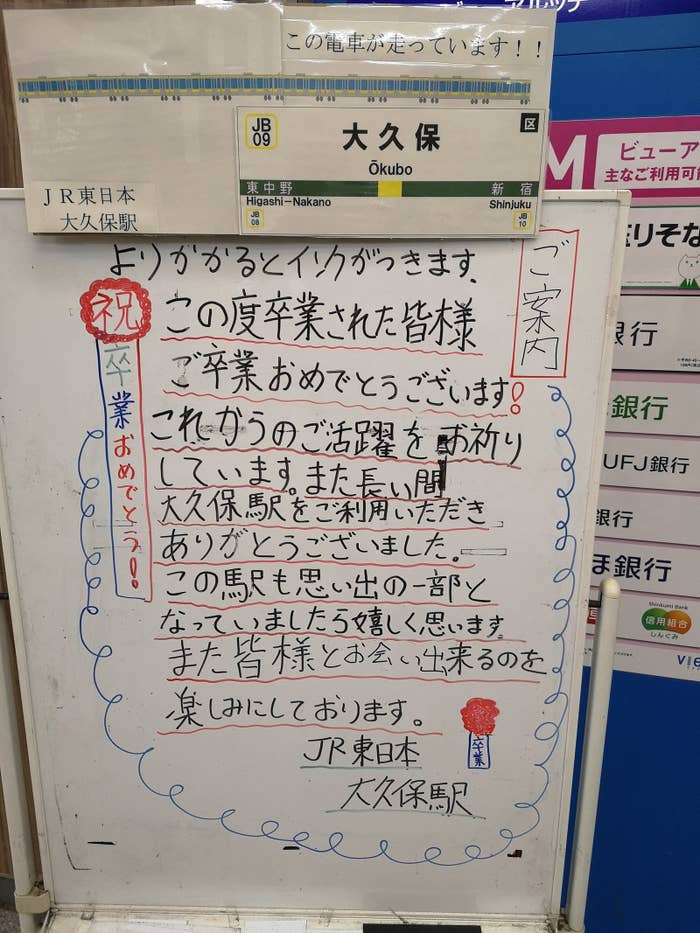 この電車が走っています！！
JB
09
大久保
区
Ōkubo
東中野
新宿
Higashi-Nakano
Shinjuku
JB
08
JB
10
JR東日本
大久保駅
よりかかるとインクがつきます、
ご案内
祝
卒業おめでとう!
この度卒業された皆様
ご卒業おめでとうございます!
これからのご活躍をお祈り
しています。また長い間
大久保駅をご利用いただき
ありがとうございました。
この駅も思い出の一部と
なっていましたら嬉しく思います。
また皆様とお会い出来るのを
楽しみにしております。
卒業
JR東日本
大久保駅
M
ビューア
主なご利用可能
りそな
銀行
銀行
UFJ銀行
銀行
ほ銀行
Shinkumi Bank
信用組合
しんくみ